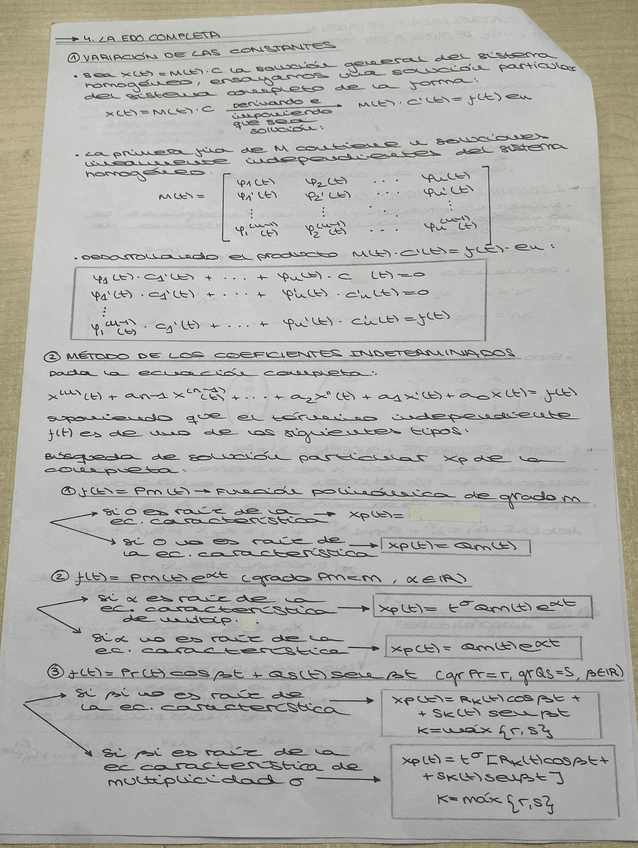 → 4. LA EDO COMPLETA
① VARIACIÓN DE LAS CONSTANTES
• Sea X(t) = M(t)·C la solución general del sistema
homogéneo, ensayamos una solución particular
del sistema completo de la forma:
X(t) = M(t)·C derivando e imponiendo que sea solución: → M(t)·C'(t) = f(t) en
• La primera fila de M contiene n soluciones
linealmente independientes del sistema
homogéneo:
M(t) = [ φ1(t) φ2(t) ... φn(t)
φ1'(t) φ2'(t) ... φn'(t)
⋮ ⋮ ⋱ ⋮
φ1^(n-1)(t) φ2^(n-1)(t) ... φn^(n-1)(t) ]
• Desarrollando el producto M(t)·C'(t) = f(t)·en:
φ1(t)·C1'(t) + ... + φn(t)·C (t) = 0
φ1'(t)·C1'(t) + ... + φn'(t)·Cn'(t) = 0
⋮
φ1^(n-1)(t)·C1'(t) + ... + φn'(t)·Cn'(t) = f(t)
② MÉTODO DE LOS COEFICIENTES INDETERMINADOS
Dada la ecuación completa:
x^(n)(t) + an-1 x^(n-1)(t) + ... + a2x''(t) + a1x'(t) + a0x(t) = f(t)
suponiendo que el término independiente
f(t) es de uno de los siguientes tipos:
Búsqueda de solución particular xp de la
completa:
① f(t) = Pm(t) → Función polinómica de grado m
si 0 es raíz de la
ec. característica → xp(t) =
si 0 no es raíz de
la ec. característica → xp(t) = Qm(t)
② f(t) = Pm(t)e^αt (grado Pm = m, α∈ℝ)
si α es raíz de la
ec. característica → xp(t) = t^σ Qm(t)e^αt
de multip. .
si α no es raíz de la
ec. característica → xp(t) = Qm(t)e^αt
③ f(t) = Pr(t)cos βt + Qs(t)sen βt (gr Pr = r, gr Qs = S, β∈ℝ)
si βi no es raíz de
la ec. característica → xp(t) = Rk(t)cos βt +
+ Sk(t) sen βt
k = max {r,s}
si βi es raíz de la
ec característica de
multiplicidad σ → xp(t) = t^σ [Rk(t)cos βt +
+ Sk(t) sen βt]
k = máx {r,s}